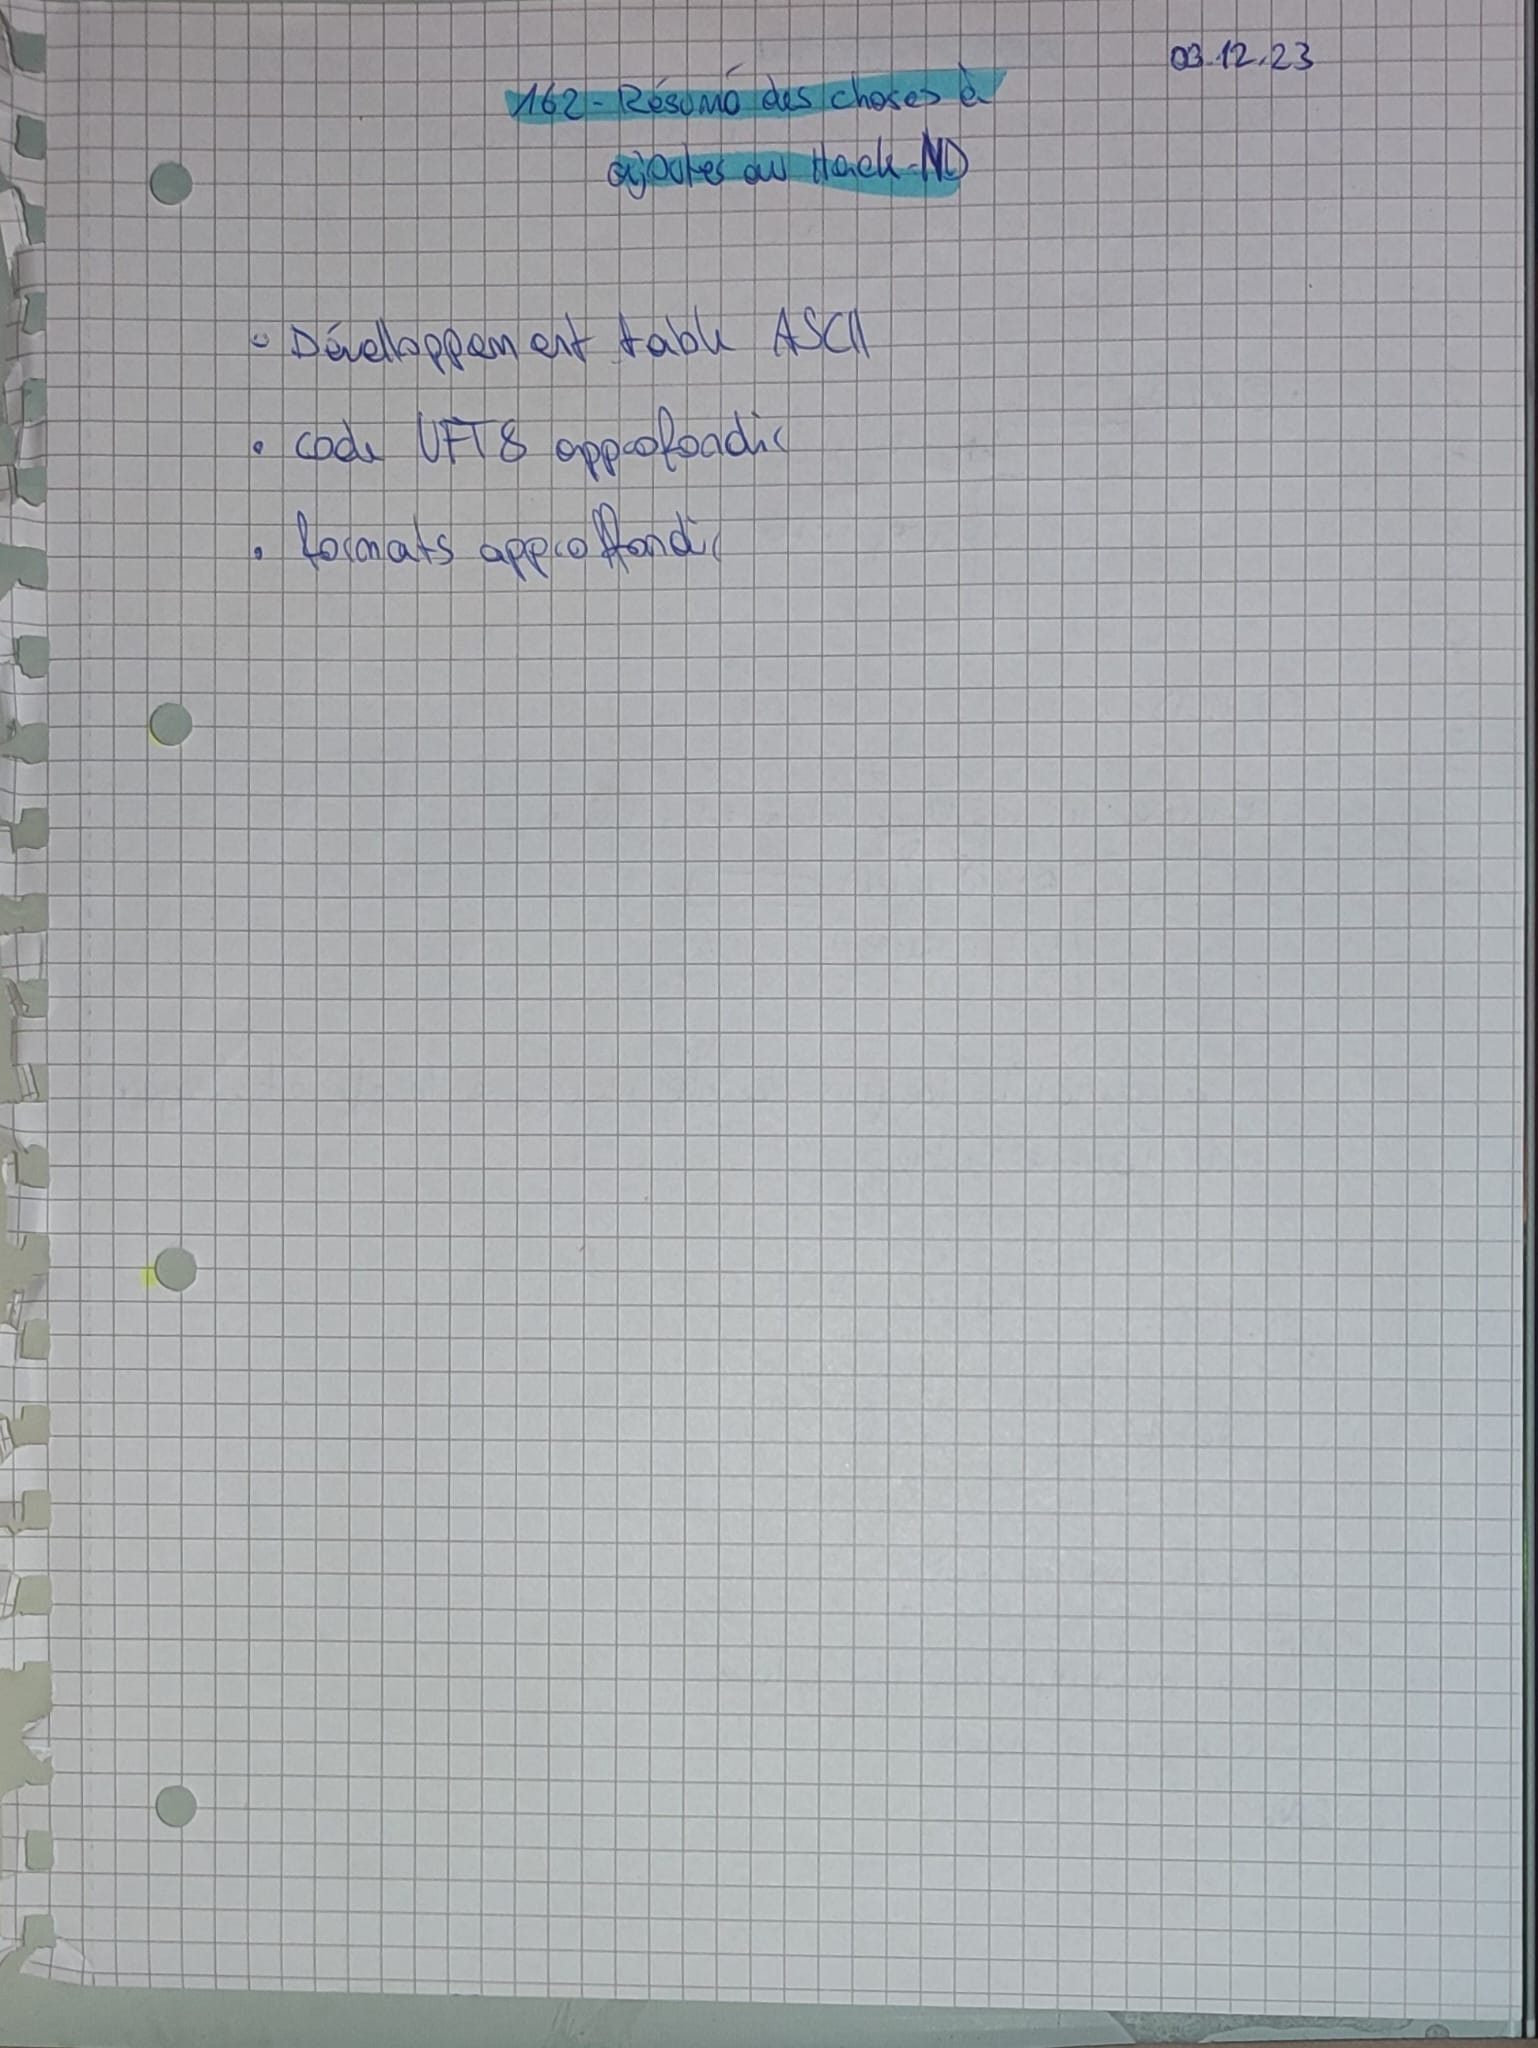 03.12.23
162 - Résumé des choses à
ajouter au Hack-MD
• Dévelloppement table ASCII
• code UFT8 approfondir
• formats approffondir